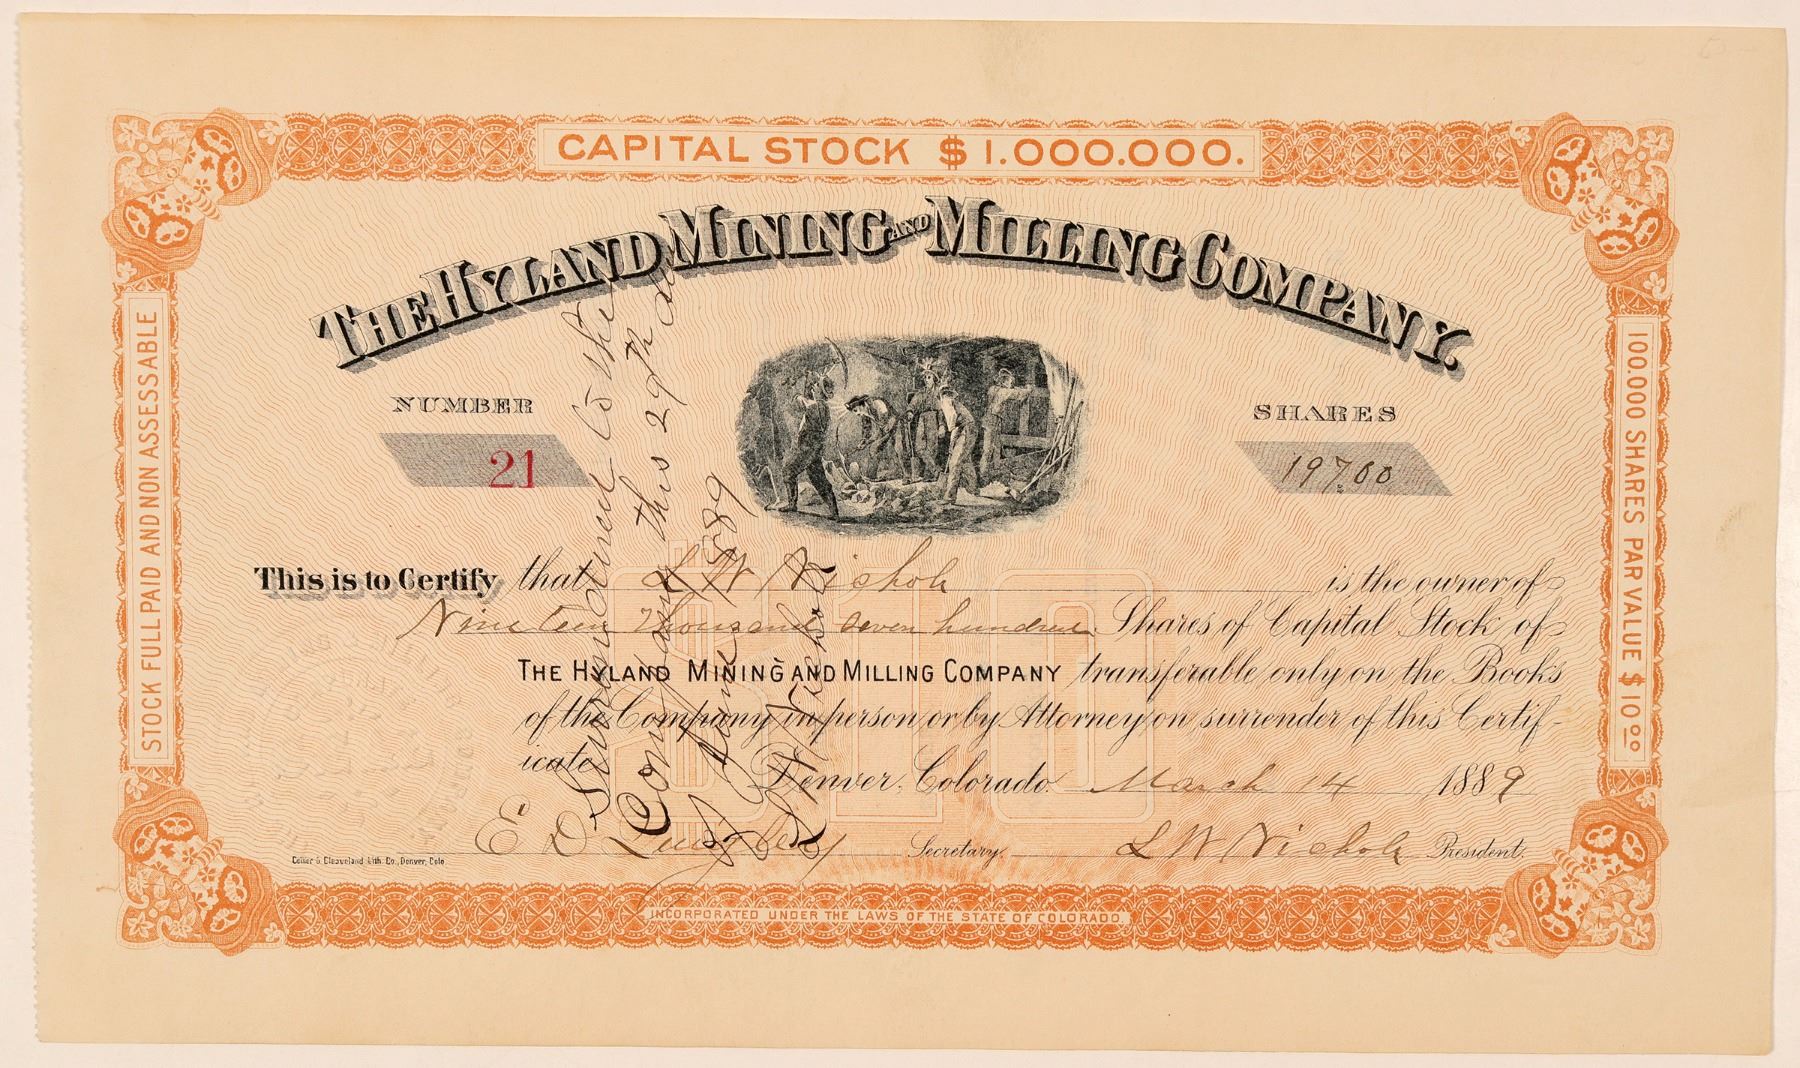 CAPITAL STOCK $1.000.000.
THE HYLAND MINING AND MILLING COMPANY.
NUMBER
21
SHARES
19700
This is to Certify that L W Nichols is the owner of
Nineteen thousand seven hundred Shares of Capital Stock of
THE HYLAND MINING AND MILLING COMPANY transferable only on the Books
of the Company in person or by Attorney on surrender of this Certif-
icate
Denver, Colorado. March 14 1889
E D Secretary. L W Nichols President.
Collier & Cleaveland Lith. Co., Denver, Colo
INCORPORATED UNDER THE LAWS OF THE STATE OF COLORADO.
STOCK FULL PAID AND NON ASSESSABLE
100.000 SHARES PAR VALUE $10 00
Surrendered to the
Company this 29th day
of June 1889
L W Nichols